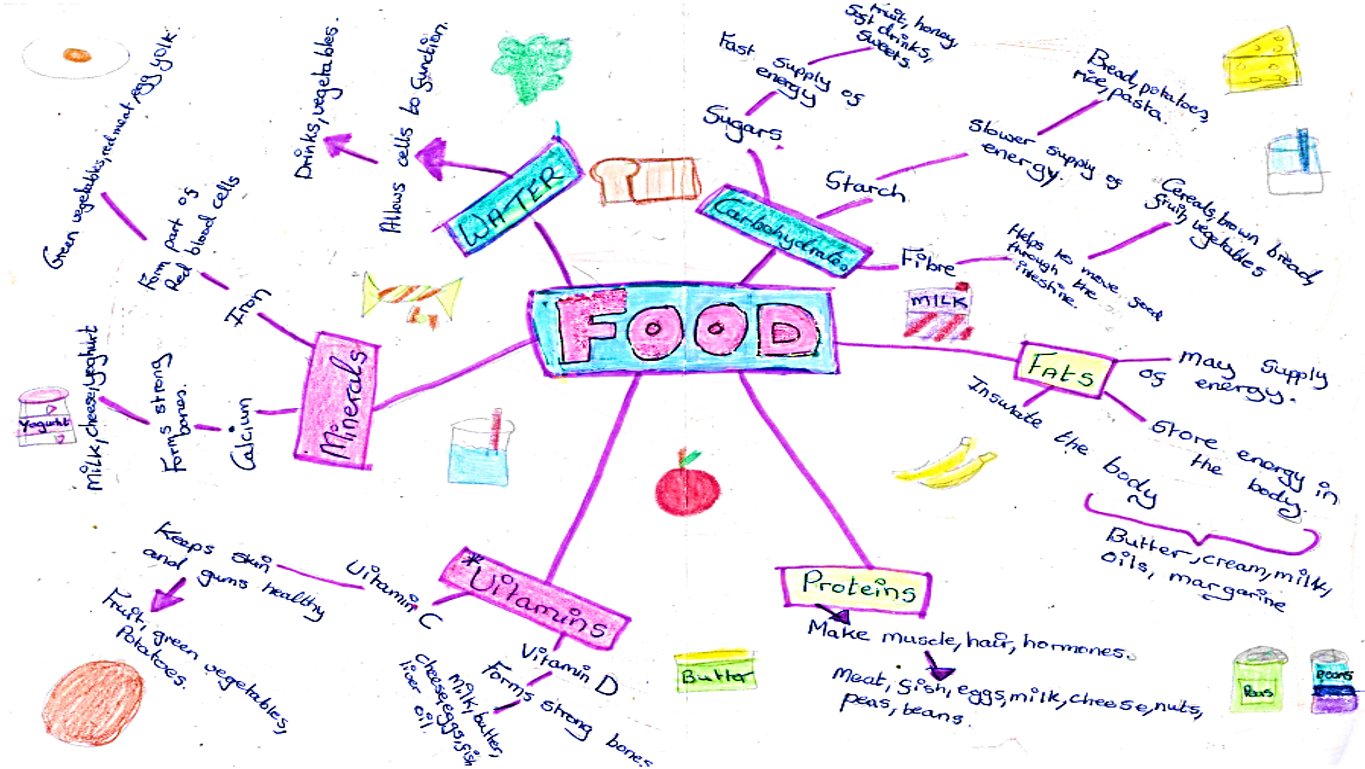 FOOD
WATER
Allows cells to function.
Drinks, vegetables.
Carbohydrates
Sugars
Fast supply of
energy
Fruit, honey,
soft drinks,
sweets.
Starch
Slower supply of
energy.
Bread, potatoes,
rice, pasta.
Fibre
Helps to move food
through the
intestine.
Cereals, brown bread,
fruit, vegetables
MILK
FATS
may supply
of energy.
Store energy in
the body.
Insulate the body
Butter, cream, milk,
oils, margarine
Proteins
Make muscle, hair, hormones.
Meat, fish, eggs, milk, cheese, nuts,
peas, beans.
Peas
Beans
Butter
*Vitamins
Vitamin D
Forms strong bones
Milk, butter,
cheese, eggs, fish
liver oil.
Vitamin C
Keeps skin
and gums healthy
Fruit, green vegetables,
Potatoes.
Minerals
Calcium
Forms strong
bones.
Milk, cheese, yoghurt
Yogurt
Iron
Form part of
Red blood cells
Green vegetables, red meat, egg yolk.